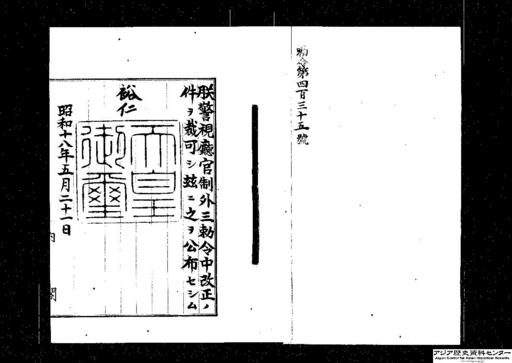 勅令第四百三十五號
朕警視廳官制外三勅令中改正ノ
件ヲ裁可シ茲ニ之ヲ公布セシム
裕仁
天皇御璽
昭和十八年五月二十一日
内閣
アジア歴史資料センター
Japan Center for Asian Historical Records